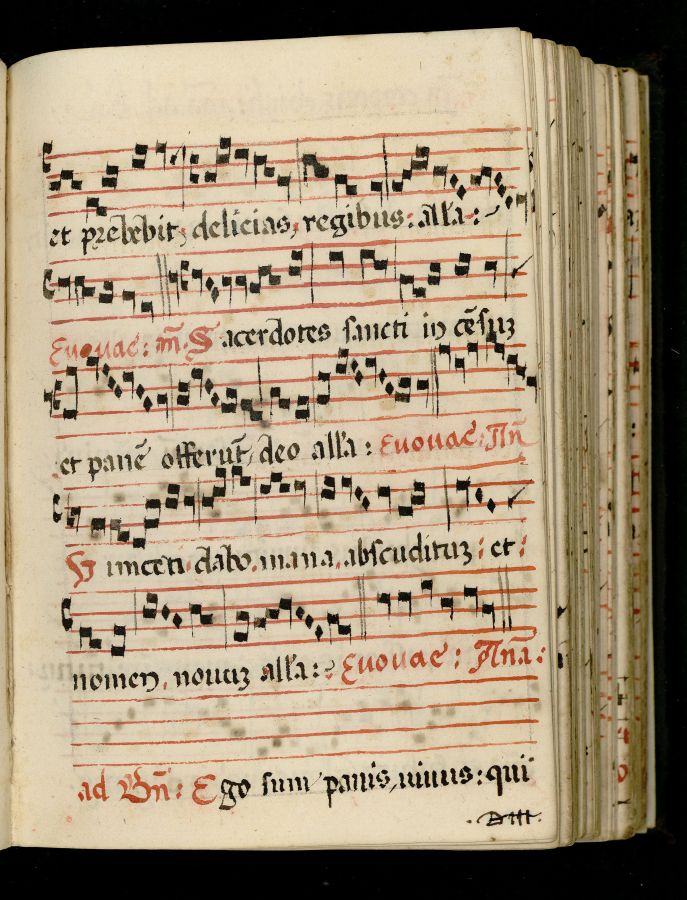 et prebebit delicias, regibus: alla:
Euouae: añ. Sacerdotes sancti incẽsuʒ
et panẽ offerũt, deo alla: Euouae: Añ
Vincenti dabo. mana, abscudituʒ: et:
nomen, nouuʒ alla: Euouae: Añna:
ad Bñ: Ego sum panis, uiuus: qui
. Diiii.